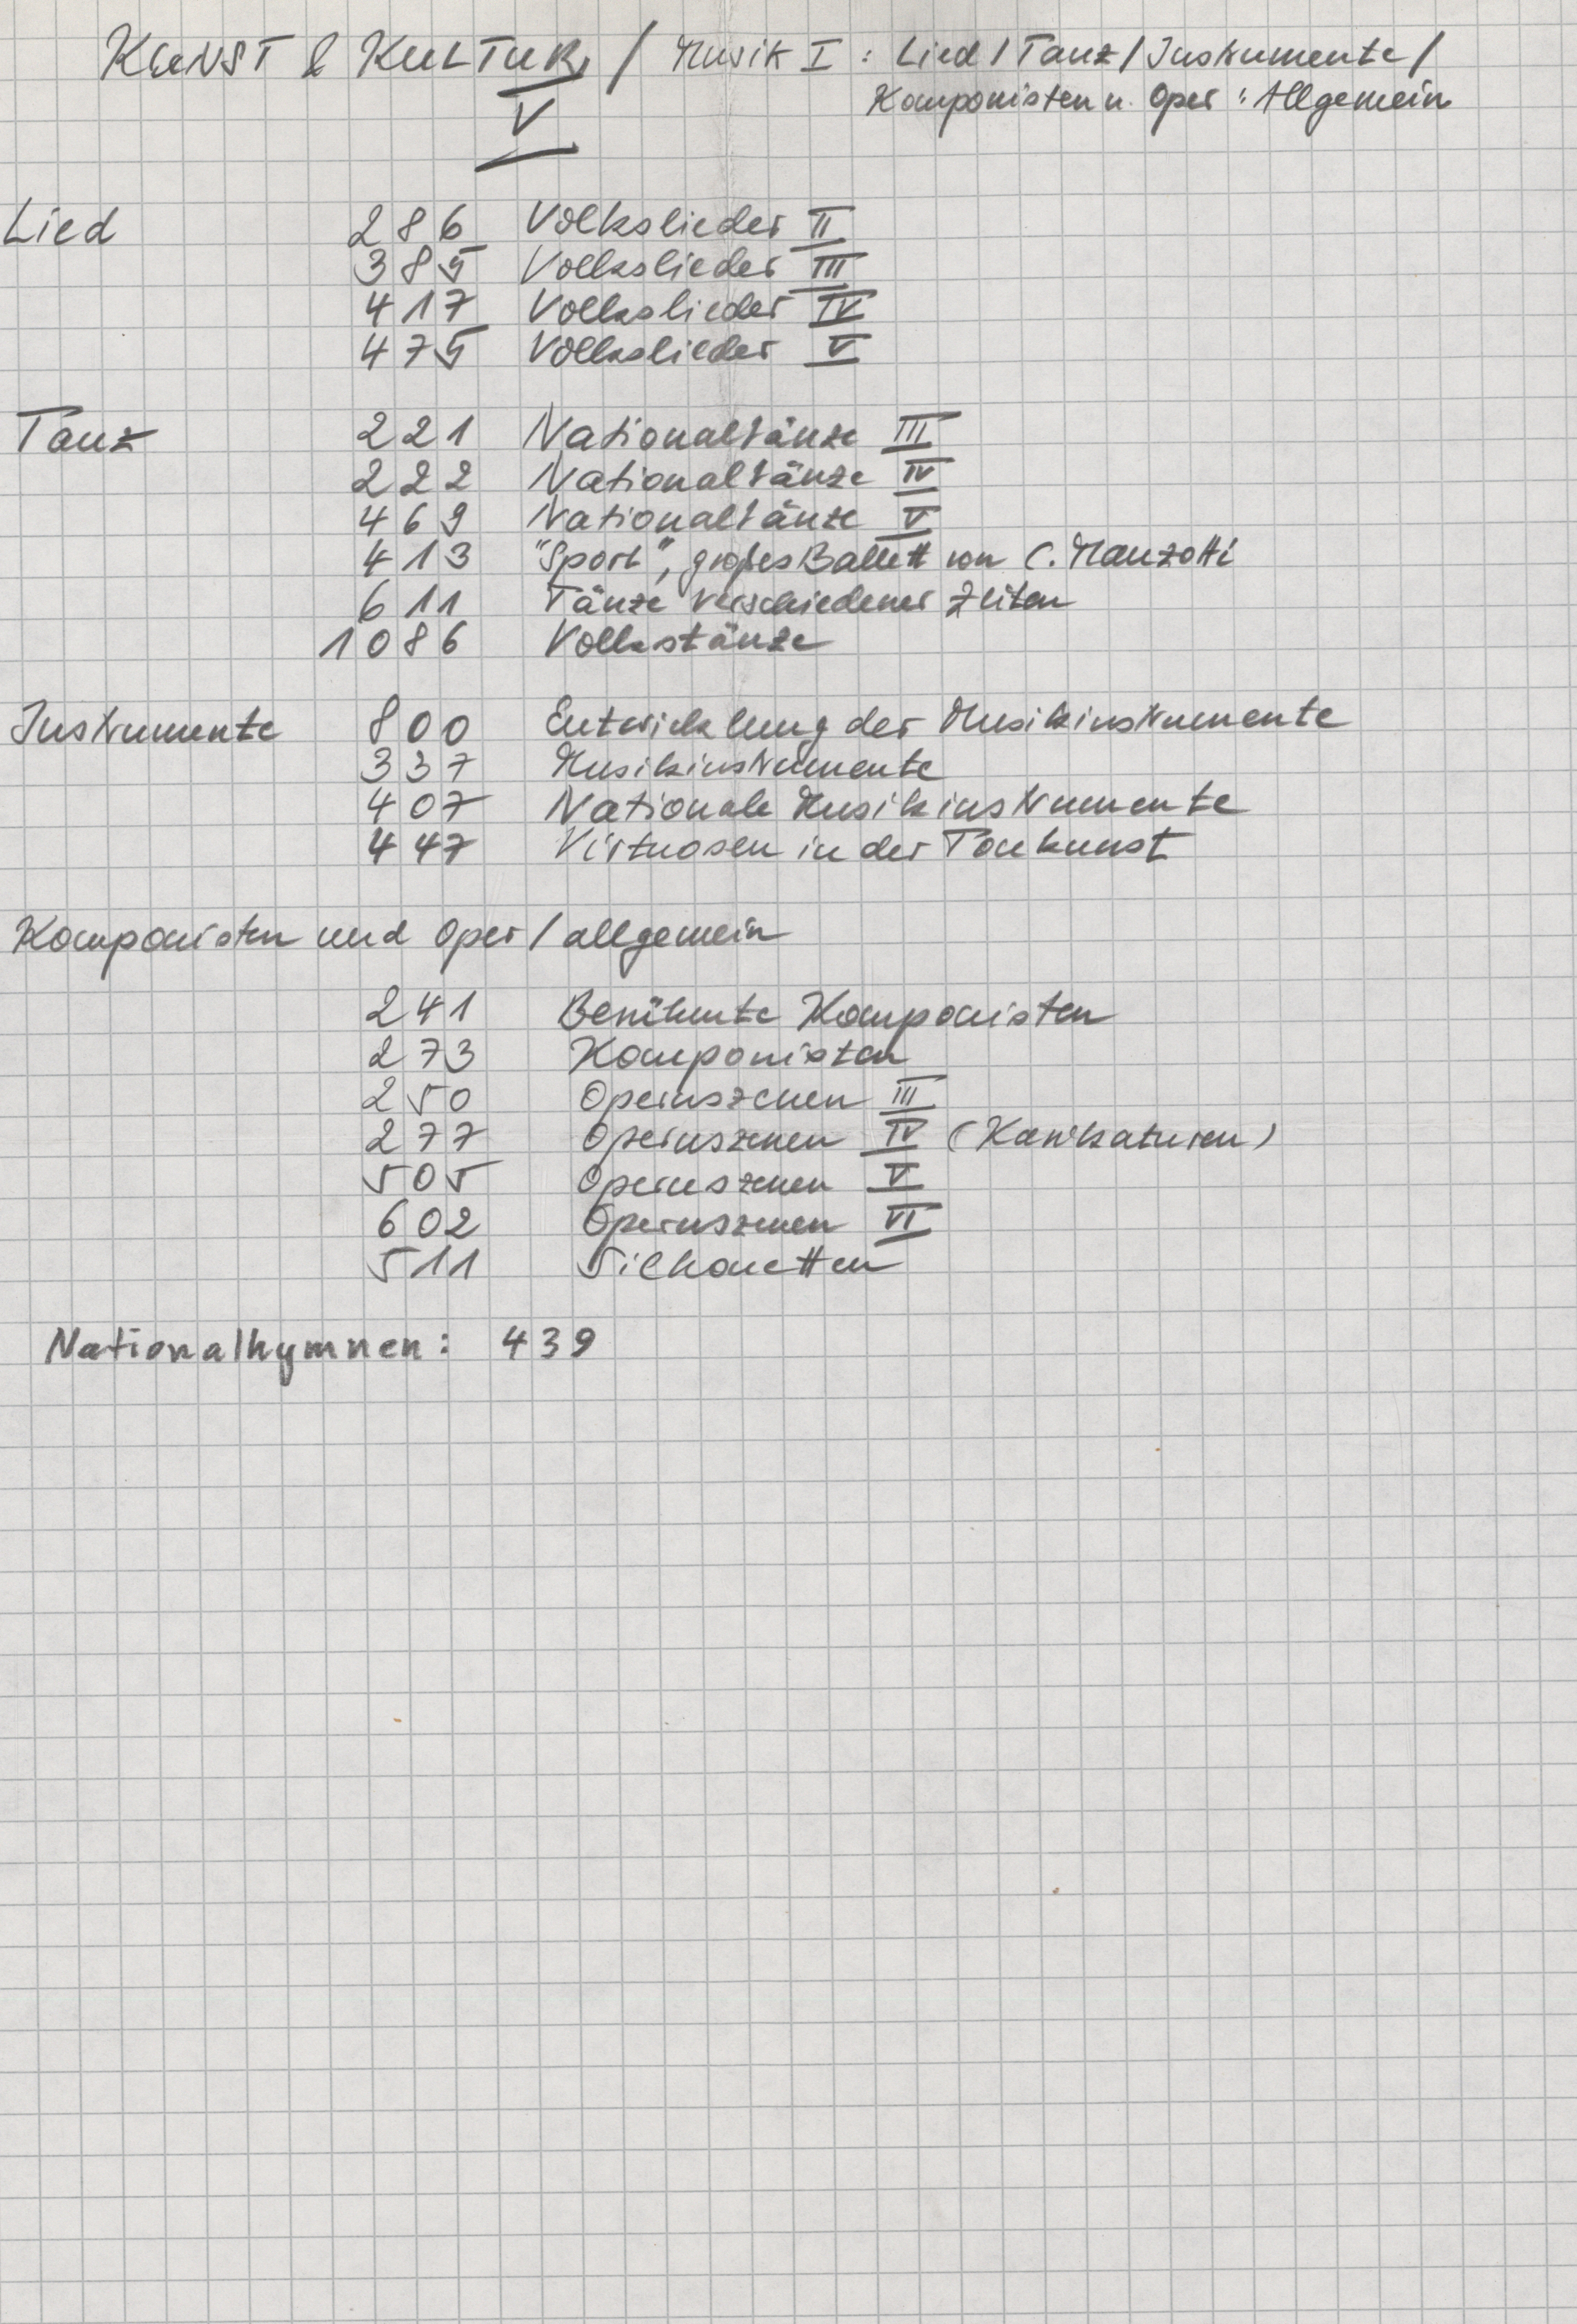 KUNST & KULTUR / Musik I : Lied / Tanz / Instrumente /
V
Komponisten u. Oper : Allgemein
Lied 286 Volkslieder II
385 Volkslieder III
417 Volkslieder IV
475 Volkslieder V
Tanz 221 Nationaltänze III
222 Nationaltänze IV
469 Nationaltänze V
413 "Sport", großes Ballett von C. Manzotti
611 Tänze verschiedener Zeiten
1086 Volkstänze
Instrumente 800 Entwicklung der Musikinstrumente
337 Musikinstrumente
407 Nationale Musikinstrumente
447 Virtuosen in der Tonkunst
Komponisten und Oper / allgemein
241 Berühmte Komponisten
273 Komponisten
250 Opernszenen III
277 Opernszenen IV (Karikaturen)
505 Opernszenen V
602 Opernszenen VI
511 Silhouetten
Nationalhymnen : 439